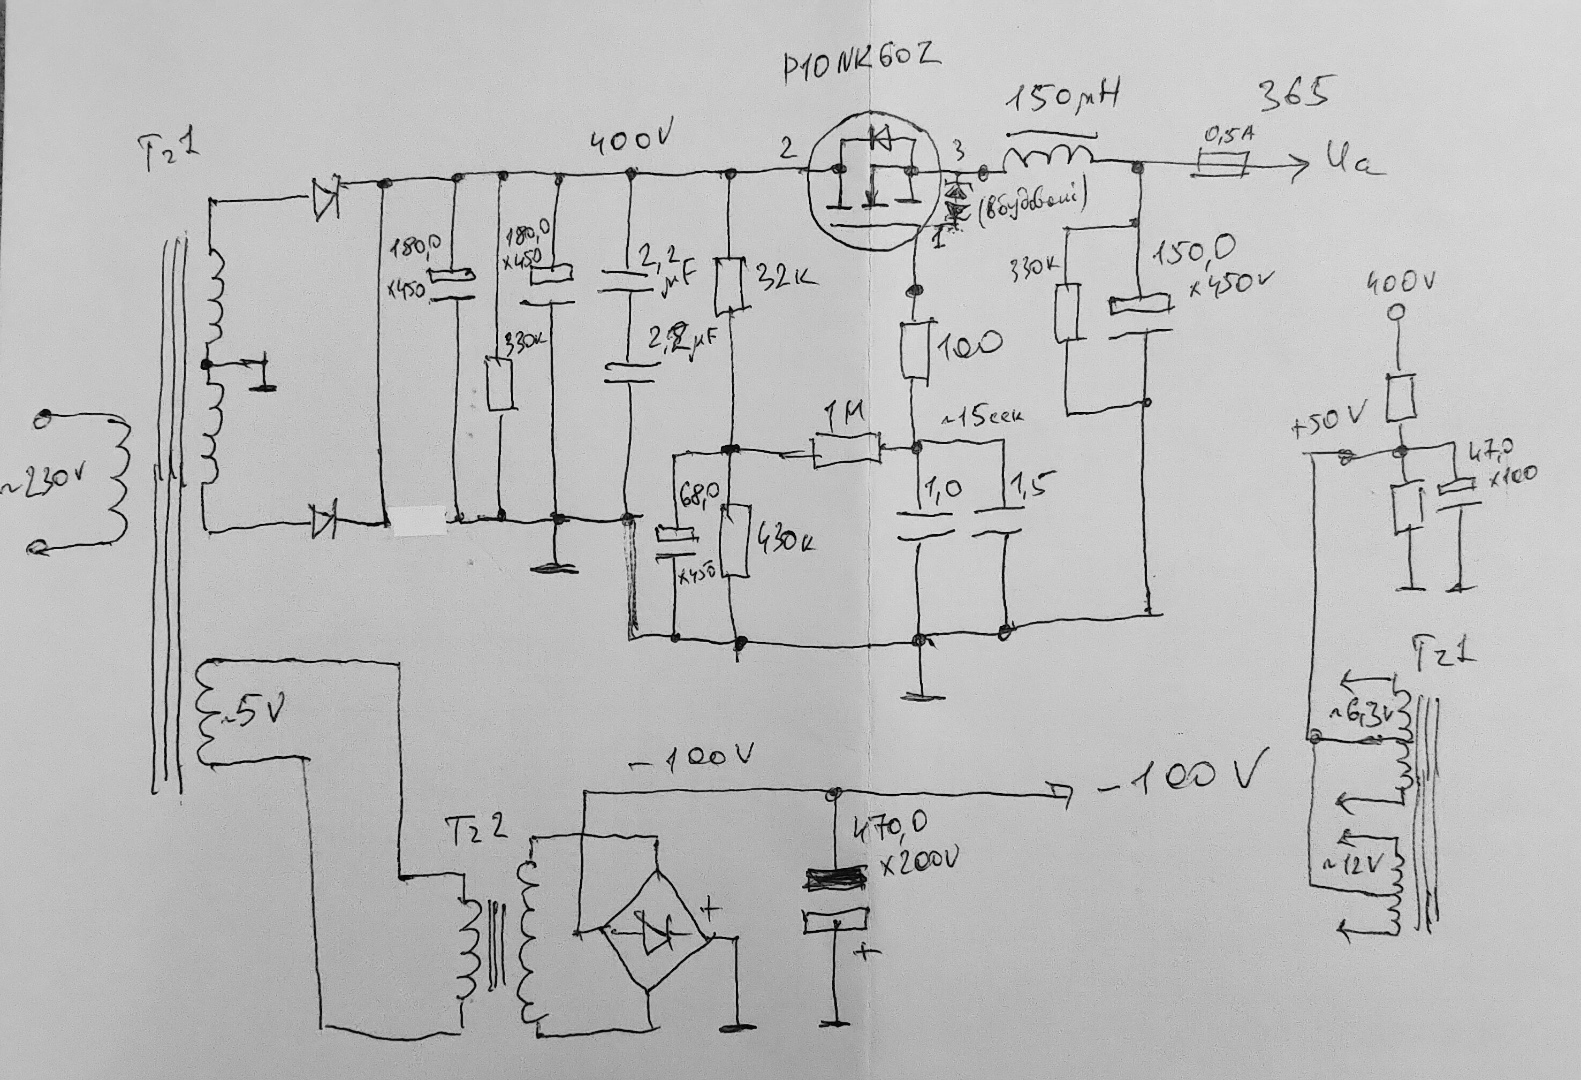 P10NK60Z
150μH
365
Tz1
400V
2
3
0,5A
Ua
(вбудовані)
1
180,0
x450
180,0
x450
2,2
μF
32к
330к
150,0
x450V
400V
330к
2,2μF
100
~230V
1M
~15сек
+50V
47,0
x100
68,0
x450
430к
1,0
1,5
Tz1
~5V
~6,3V
-100V
-100V
~12V
Tz2
470,0
x200V
+
+